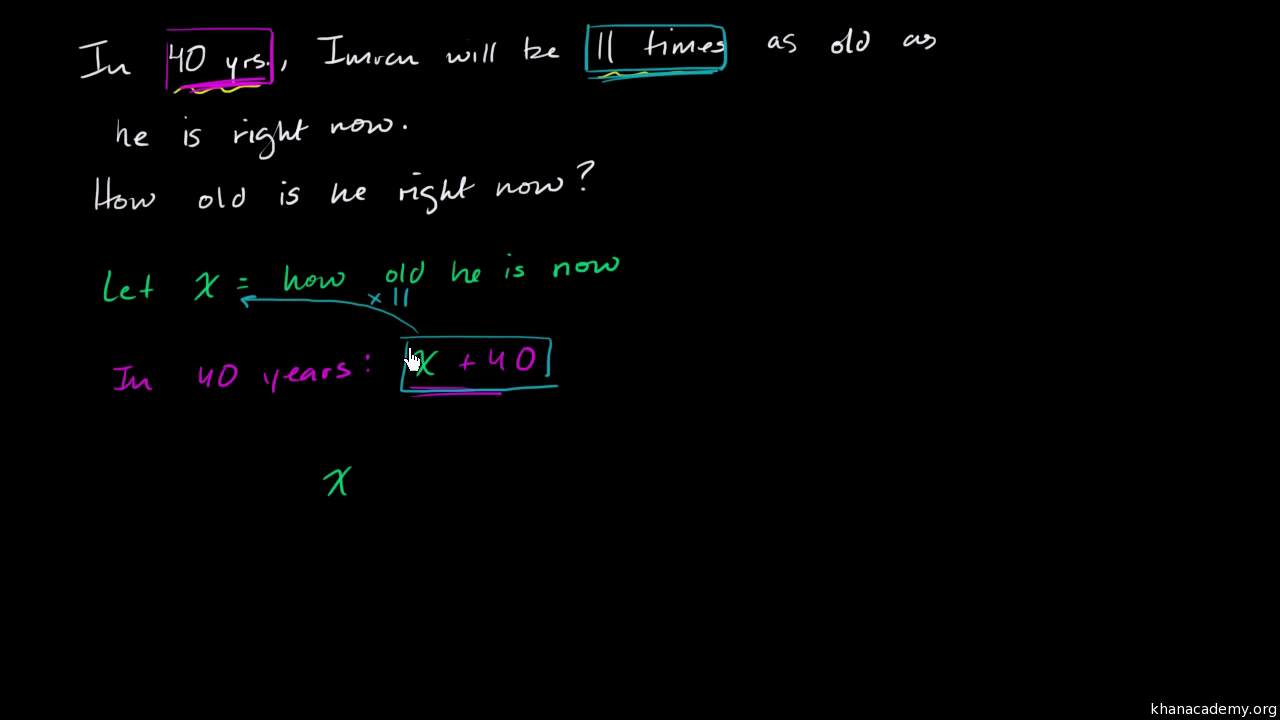 In 40 yrs., Imran will be 11 times as old as
he is right now.
How old is he right now?
Let x = how old he is now
× 11
In 40 years: x + 40
x
khanacademy.org